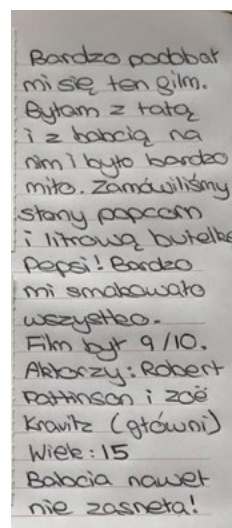 Bardzo podobał
mi się ten film.
Byłam z tatą
i z babcią na
nim i było bardzo
miło. Zamówiliśmy
słony popcorn
i litrową butelkę
Pepsi! Bardzo
mi smakowało
wszystko.
Film był 9/10.
Aktorzy: Robert
Pattinson i Zoë
Kravitz (główni)
Wiek: 15
Babcia nawet
nie zasnęła!